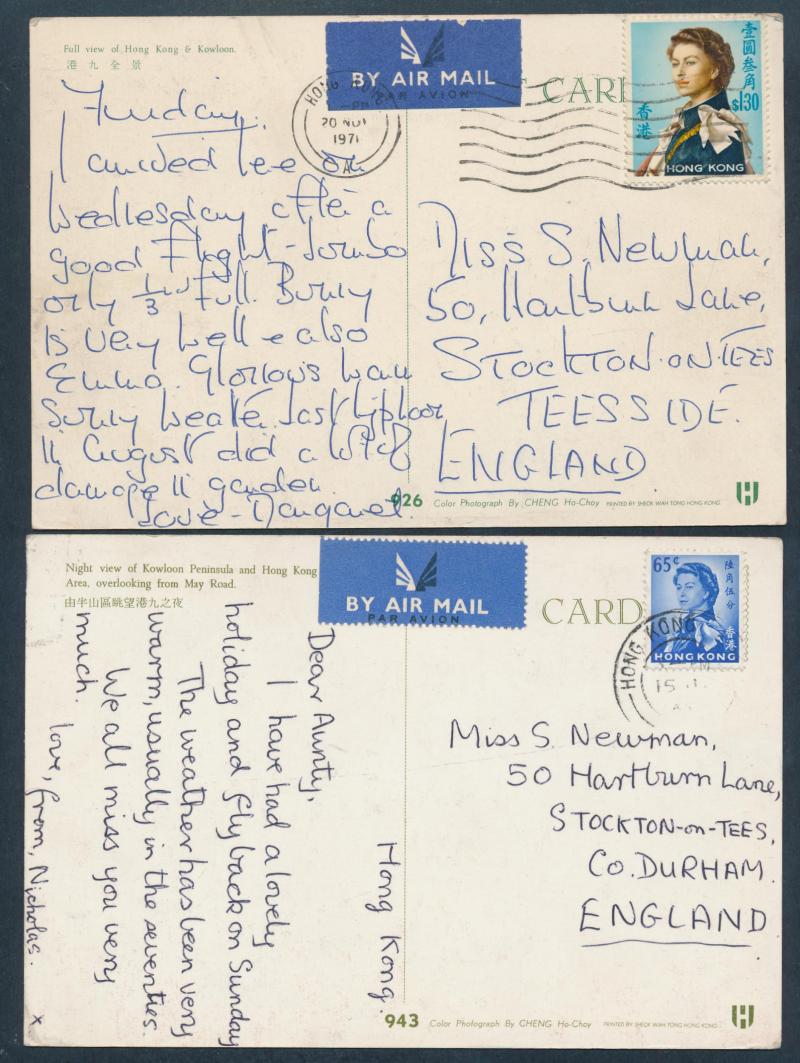 Full view of Hong Kong & Kowloon.
港九全景
BY AIR MAIL
PAR AVION
CARD
HONG KONG
20 NOV
1971
A
壹圓叁角
$1.30
香港
HONG KONG
I arrived here on
Wednesday after a
good flight - Jumbo
only 1/3 full.
is very well & also
Emma. Glorious warm
sunny weather. Last typhoon
in August did a bit of
damage in garden.
Love - Margaret.
Miss S. Newman,
50, Hartburn Lane,
STOCKTON-ON-TEES
TEESSIDE.
ENGLAND
926 Color Photograph By CHENG Ho-Choy PRINTED BY SHECK WAH TONG HONG KONG.
Night view of Kowloon Peninsula and Hong Kong
Area, overlooking from May Road.
由半山區眺望港九之夜
BY AIR MAIL
PAR AVION
CARD
65¢
陸角伍分
香港
HONG KONG
HONG KONG
PM
15
Hong Kong
Dear Aunty,
I have had a lovely
holiday and fly back on Sunday
The weather has been very
warm, usually in the seventies.
We all miss you very
much.
love, from, Nicholas.
x
Miss S. Newman,
50 Hartburn Lane,
STOCKTON-on-TEES,
CO. DURHAM.
ENGLAND
943 Color Photograph By CHENG Ho-Choy PRINTED BY SHECK WAH TONG HONG KONG.